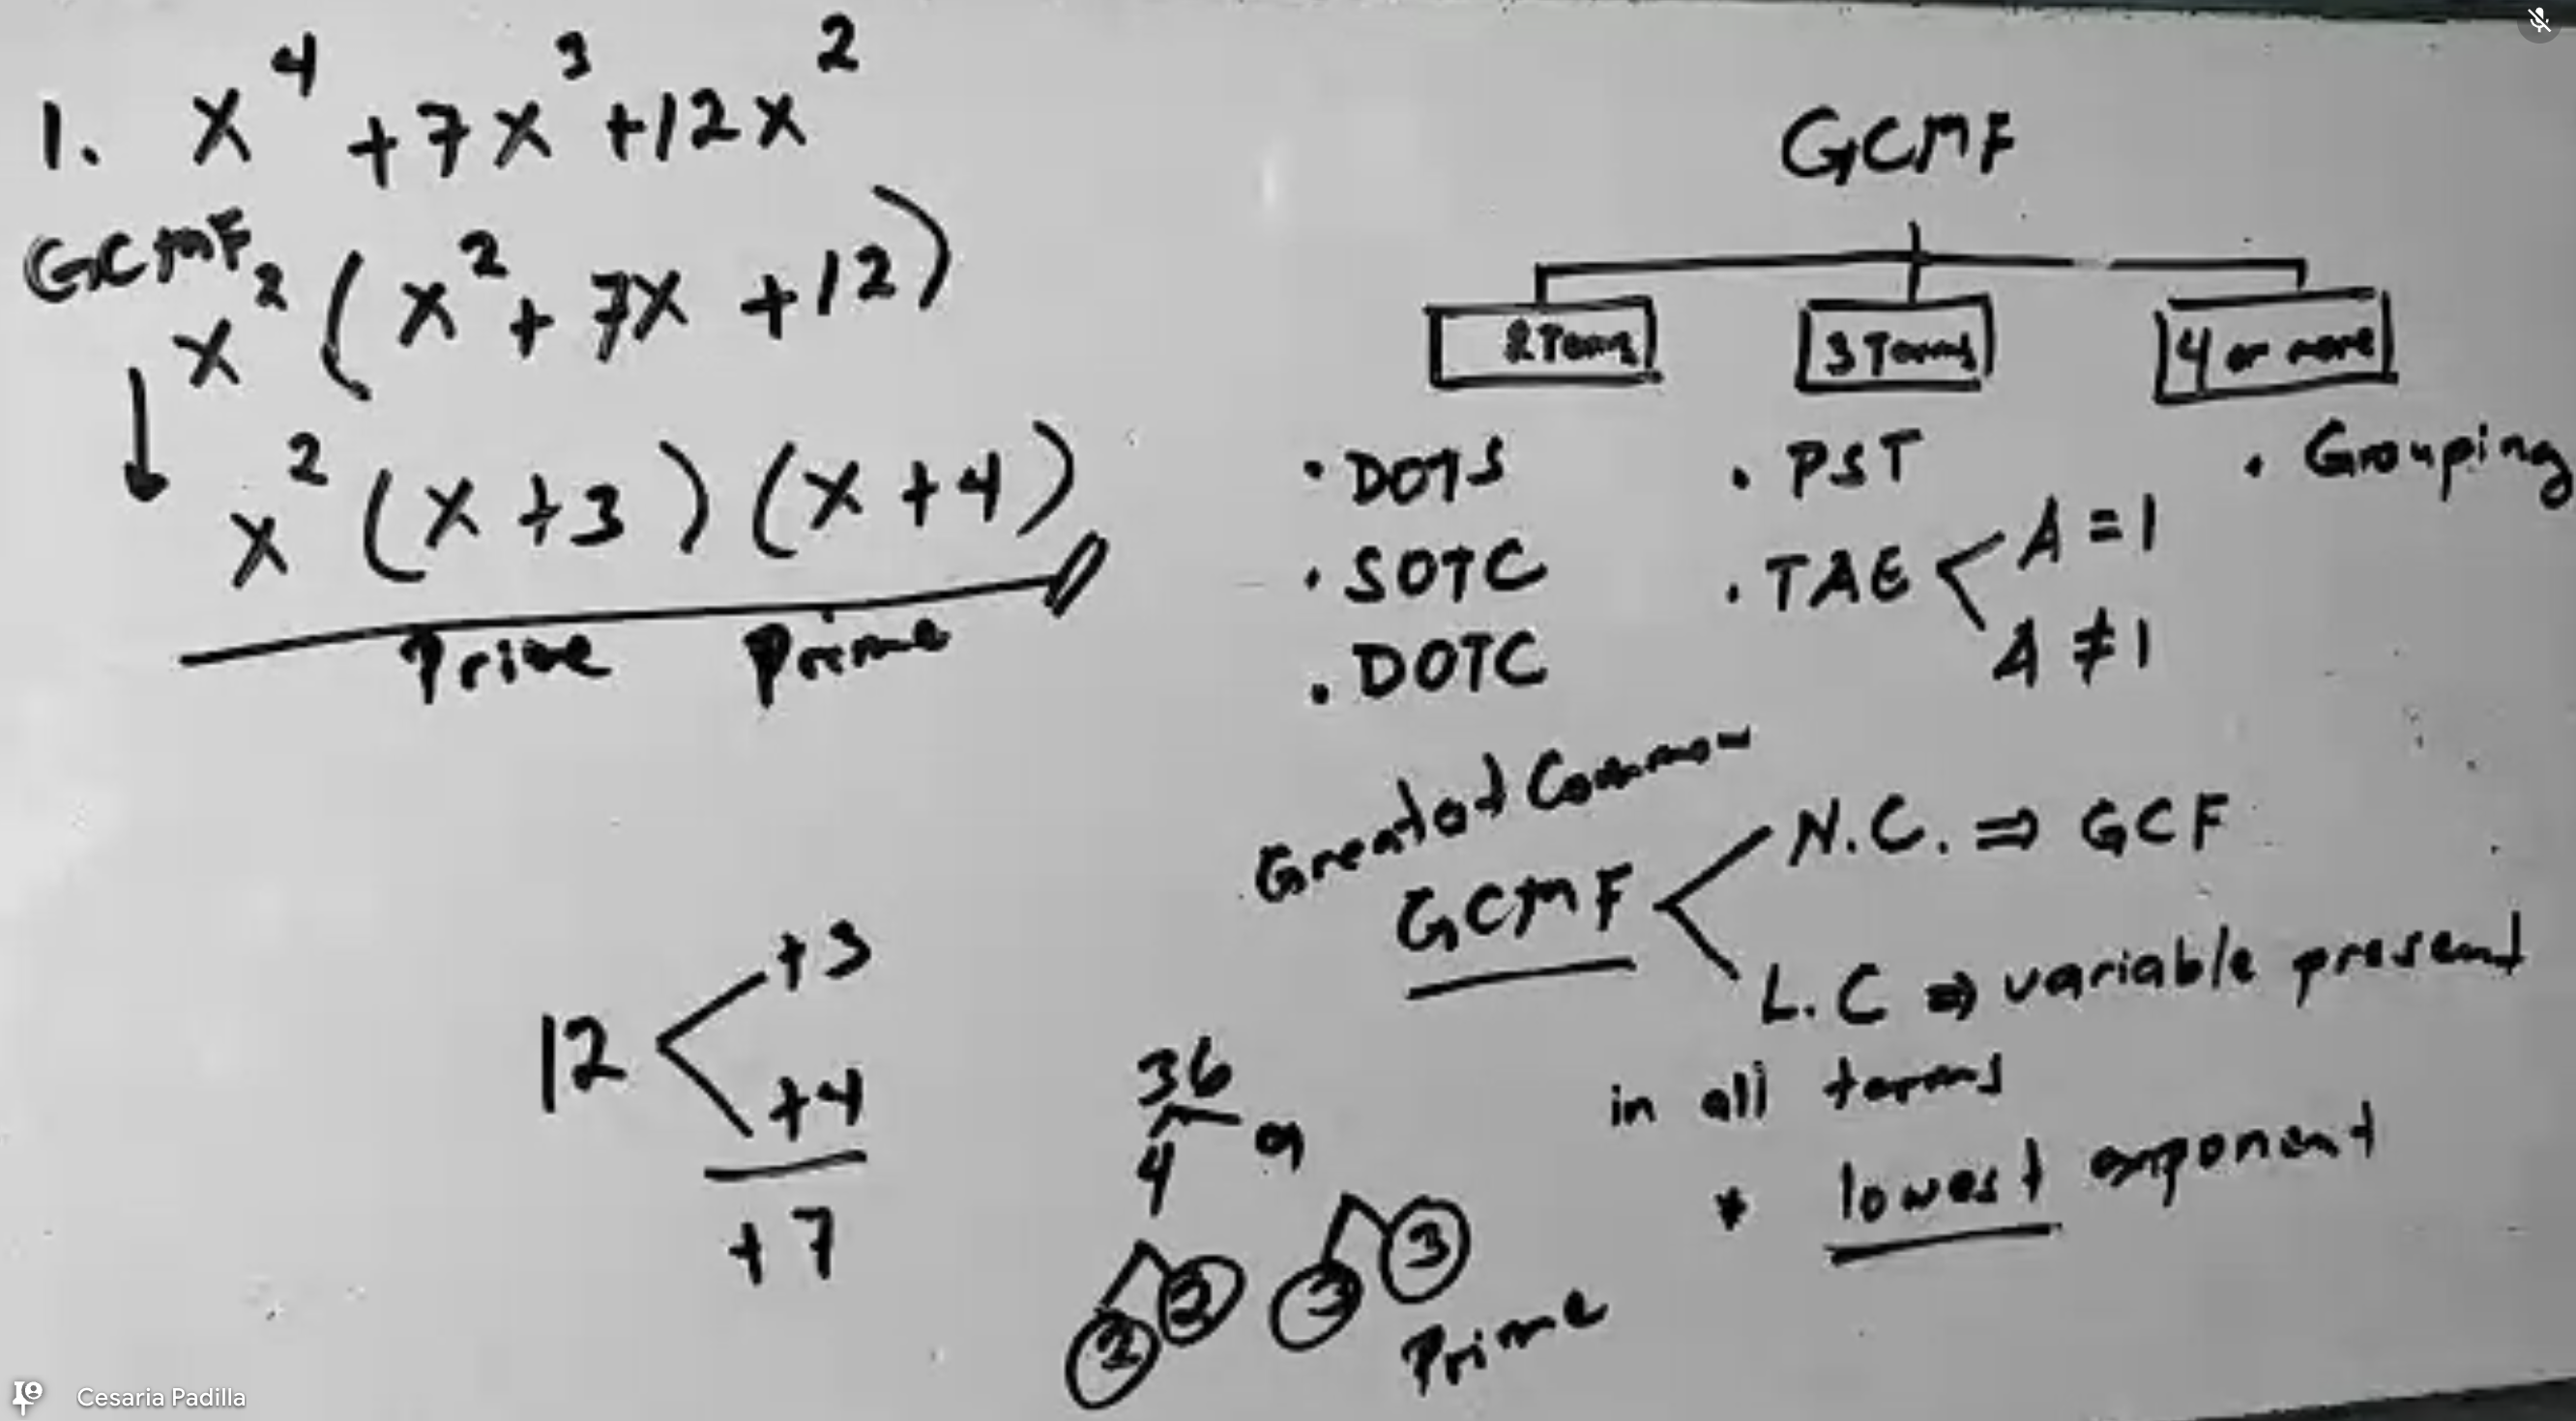 1. x⁴ + 7x³ + 12x²
GCMF
x² (x² + 7x + 12)
x² (x + 3) (x + 4)
Prime Prime
12
+3
+4
+7
GCMF
2 Terms
3 Terms
4 or more
• DOTS
• SOTC
• DOTC
• PST
• TAE < A = 1
A ≠ 1
• Grouping
Greatest Common
GCMF < N.C. ⇒ GCF
L.C ⇒ variable present
in all terms
* lowest exponent
36
4 9
2 2 3 3
Prime
Cesaria Padilla